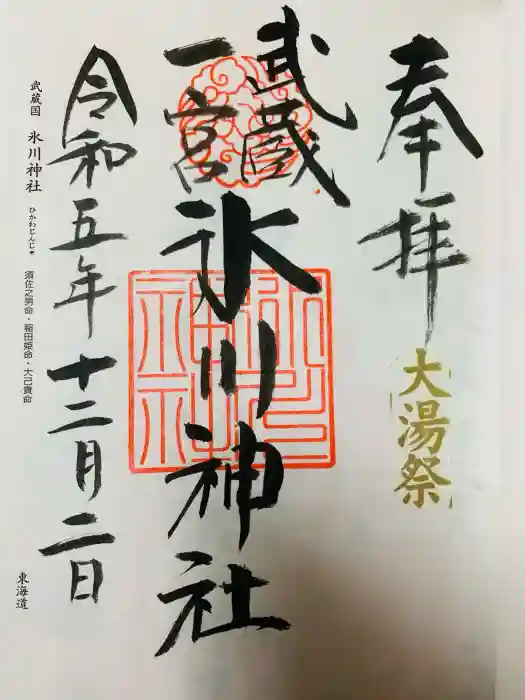 奉拝
大湯祭
武蔵
一宮
氷川神社
令和五年十二月二日
武蔵国 氷川神社 ひかわじんじゃ 須佐之男命・稲田姫命・大己貴命
東海道
氷川
神社